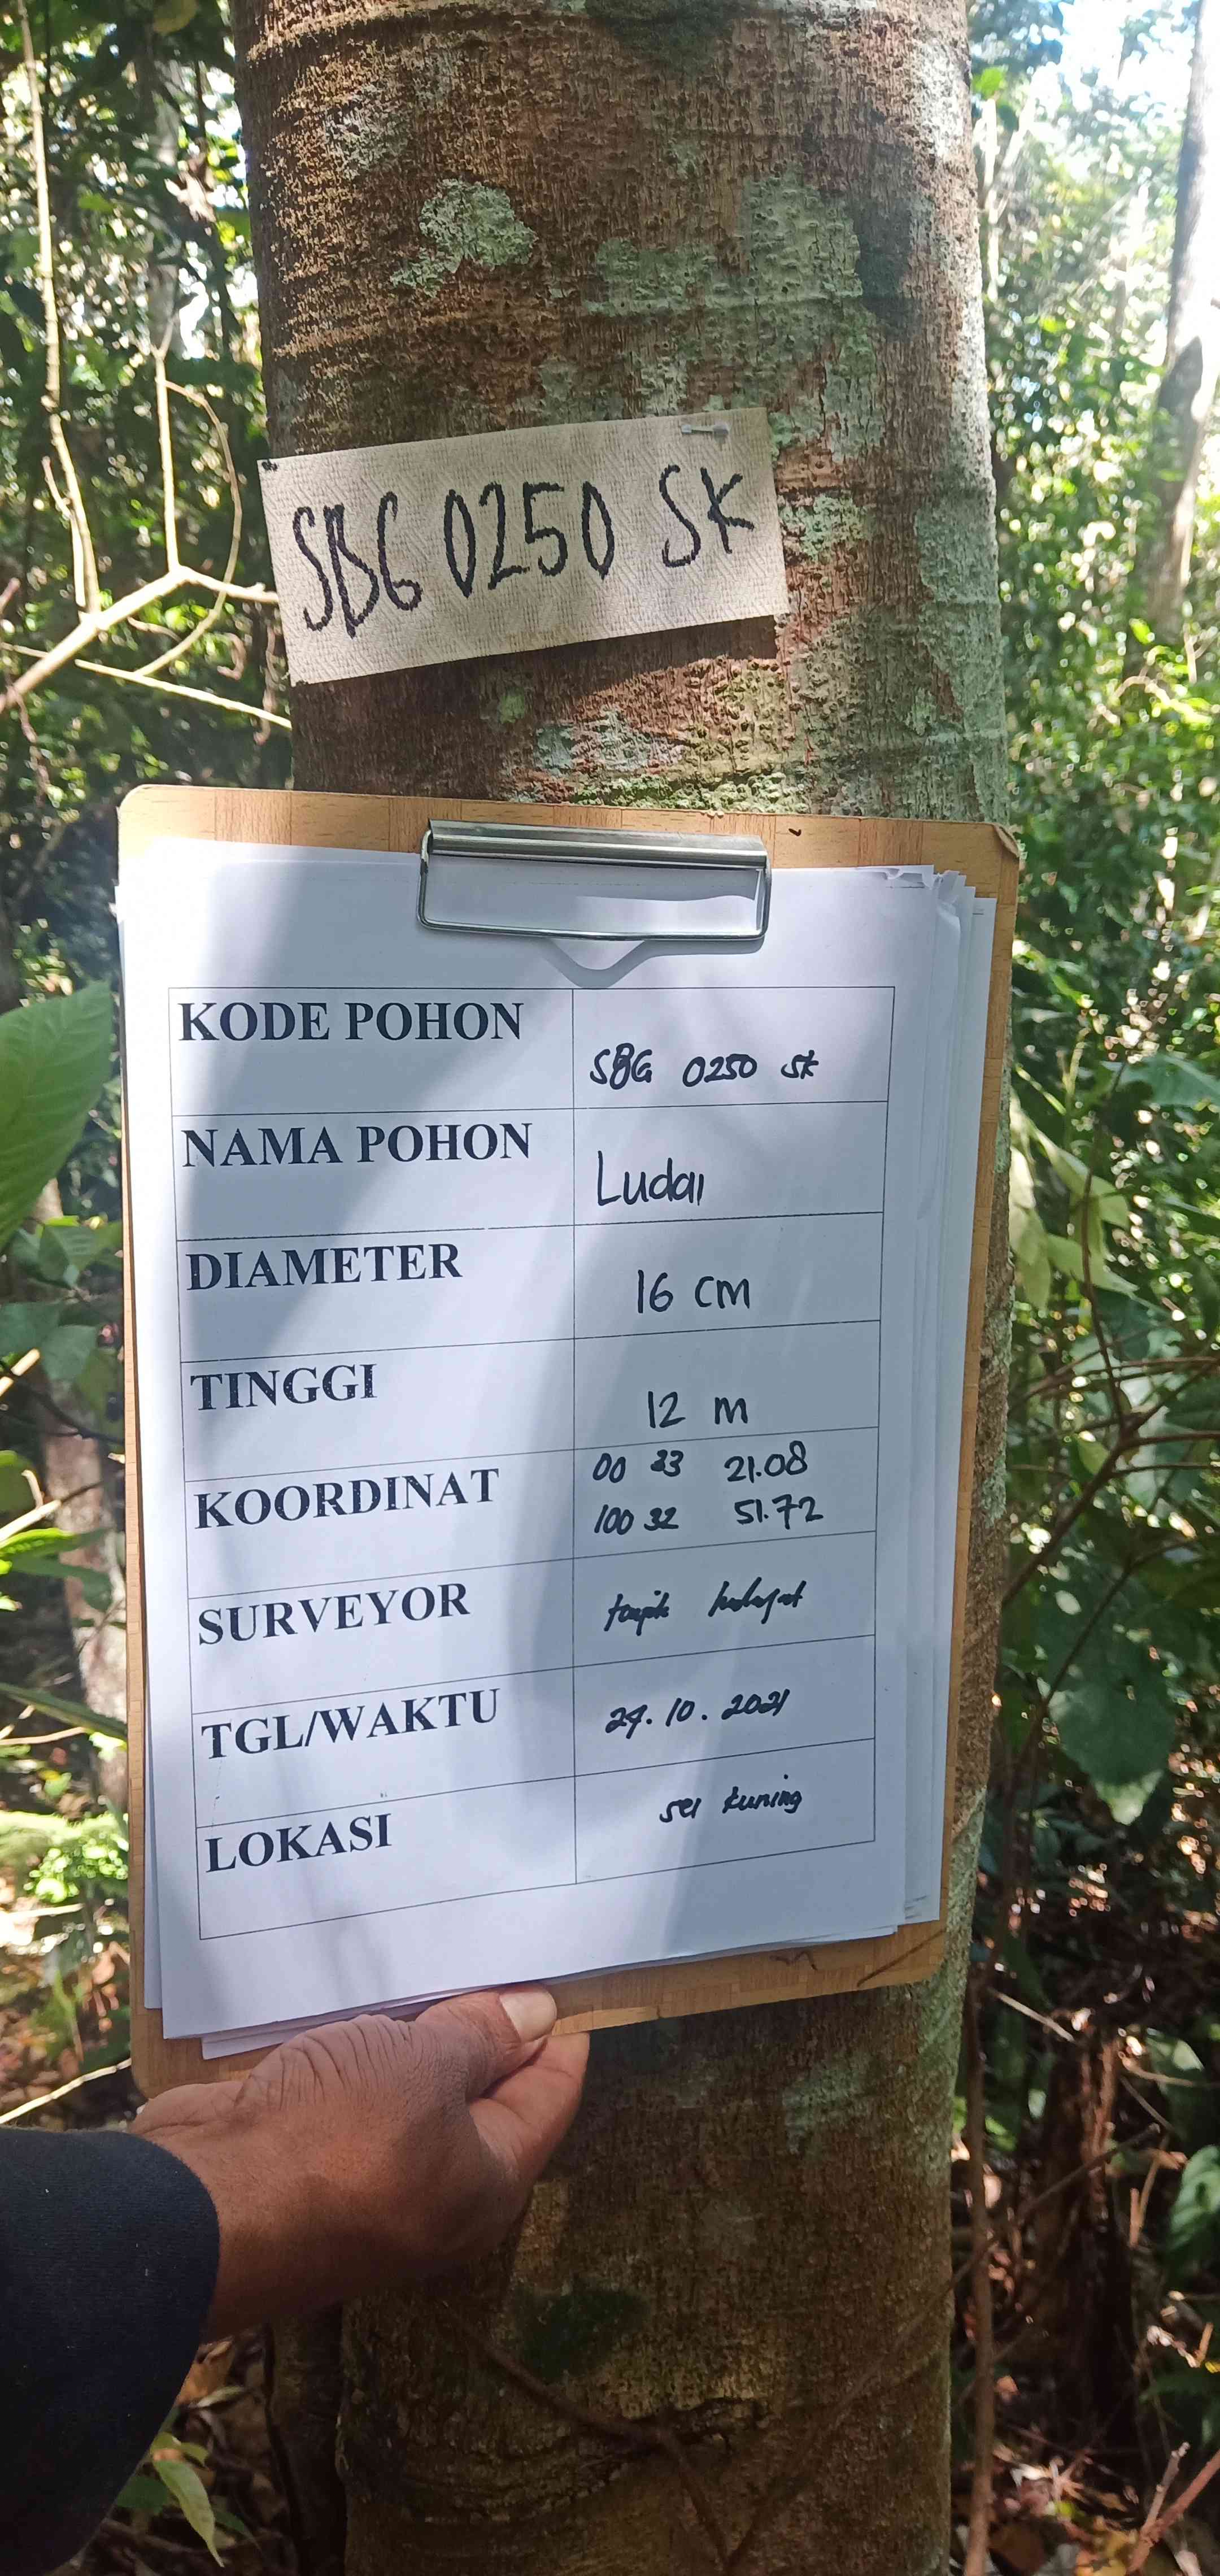 SBG 0250 SK
KODE POHON
SBG 0250 SK
NAMA POHON
Ludai
DIAMETER
16 cm
TINGGI
12 m
KOORDINAT
00 33 21.08
100 32 51.72
SURVEYOR
taufik hidayat
TGL/WAKTU
24.10.2021
LOKASI
sei kuning